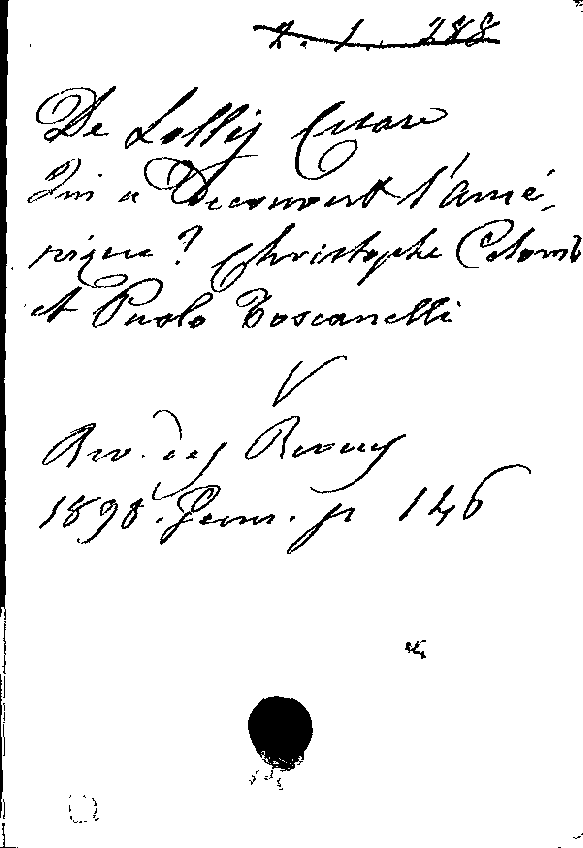 2. 1. 288
De Lollis Cesare
Qui a Decouvert l'Amé-
rique? Christophe Colomb
et Paolo Toscanelli
V
Rev. des Revues
1898. Janv. p 146